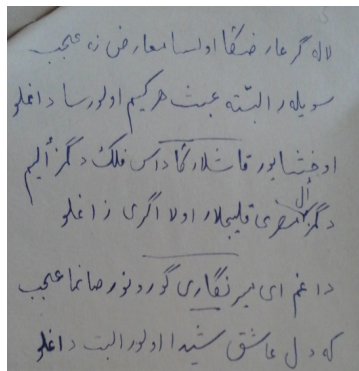 لاله گر عارضڭا اولسا معارض نه عجب
سویلر البتّه عبث هر کیم اولورسا داغلو
اوخشایور قاشلارڭا داس فلک دگمز اُلیم
دگمز مصری قلیجلار اولا اگری زاغلو
داغم ای بیر نگاری گورونور صانما عجب
که دل عاشق شیدا اولور البت داغلو